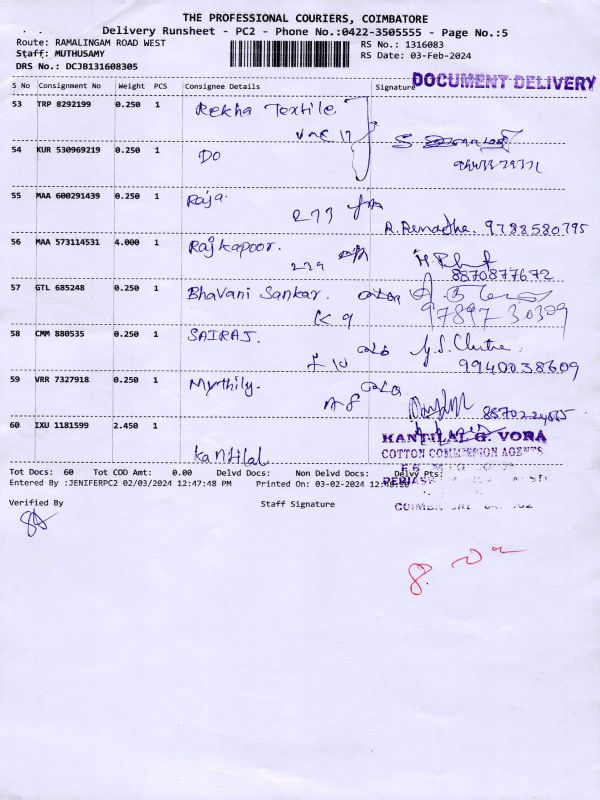 THE PROFESSIONAL COURIERS, COIMBATORE
Delivery Runsheet - PC2 - Phone No.:0422-3505555 - Page No.:5
Route: RAMALINGAM ROAD WEST
RS No.: 1316083
Staff: MUTHUSAMY
RS Date: 03-Feb-2024
DRS No.: DCJB131608305
DOCUMENT DELIVERY
S No Consignment No Weight PCS Consignee Details Signature
53 TRP 8292199 0.250 1 Rekha Textile
54 KUR 530969219 0.250 1 DO
55 MAA 600291439 0.250 1 Raja.
273
R. Renadha. 9788580795
56 MAA 573114531 4.000 1 Rajkapoor.
239
8870877672
57 GTL 685248 0.250 1 Bhavani Sankar.
K 9
97897 30309
58 CMM 880535 0.250 1 SAIRAJ.
£ 10
9940038609
59 VRR 7327918 0.250 1 Mythily.
A8
60 IXU 1181599 2.450 1 Kantilal
KANTILAL G. VORA
COTTON COMMISSION AGENTS
Tot Docs: 60 Tot COD Amt: 0.00 Delvd Docs: Non Delvd Docs: Delvy Pts:
Entered By :JENIFERPC2 02/03/2024 12:47:48 PM Printed On: 03-02-2024
Verified By Staff Signature